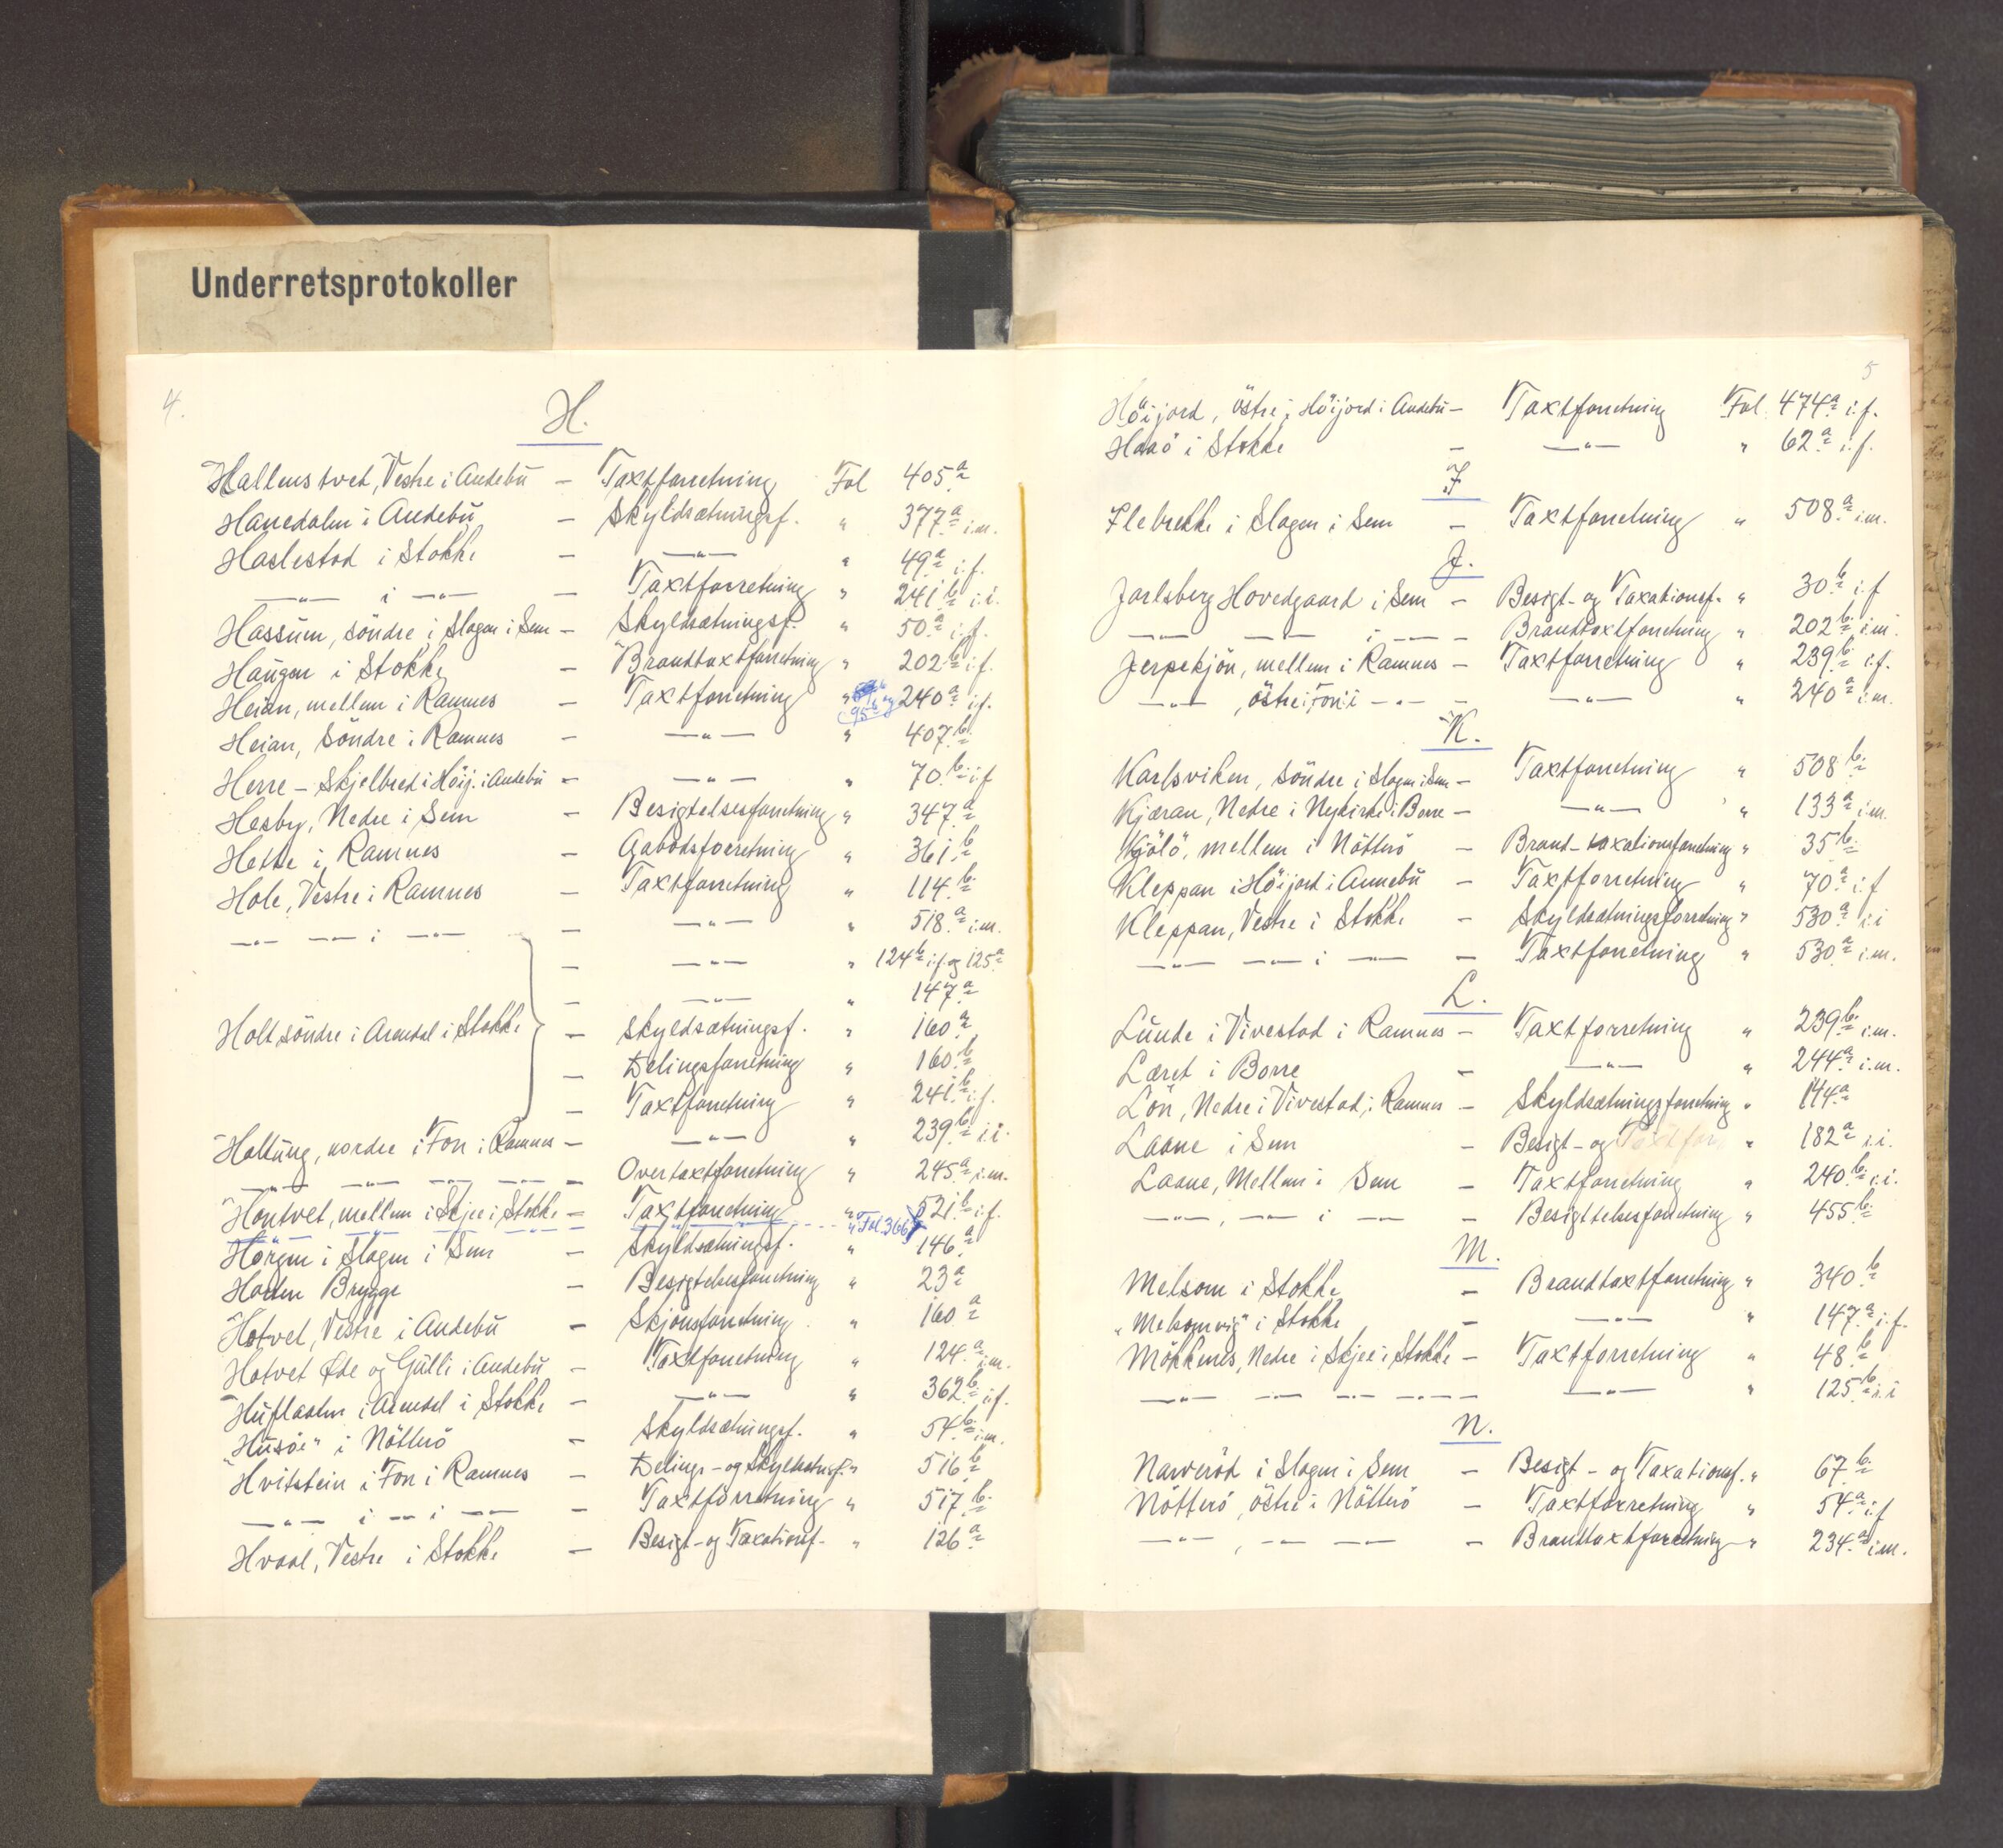 Underretsprotokoller
4.
H.
Hallenstvet, Vestre i Andebu — Taxtforretning Fol 405a
Hanedalen i Andebu — Skyldsætningsf. " 377a i.m.
Haslestad i Stokke — —"— " 49a i.f.
—"— i —"— — Taxtforretning " 241b i.i.
Hassum, söndre i Slagen i Sem — Skyldsætningsf. " 50a i.f.
Haugen i Stokke — Brandtaxtforretning " 202b i.f.
Heian, mellem i Ramnes — Taxtforretning " 95b og 240a i.f.
Heian, Söndre i Ramnes — —"— " 407b
Herre-Skjelbred i Höij. i Andebu — —"— " 70b i.f
Hesby, Nedre i Sem — Besigtelsesforretning " 347a
Hette i Ramnes — Aabodsforretning " 361b
Hole, Vestre i Ramnes — Taxtforretning " 114b
—"— —"— i —"— — —"— " 518a i.m.
— —"— " 124b i.f og 125a
— —"— " 147a
Holt, söndre i Arendal i Stokke — Skyldsætningsf. " 160a
— Delingsforretning " 160b
— Taxtforretning " 241b i.f.
Haltung, nordre i Fon i Ramnes — —"— " 239b i.i.
—"— —"— —"— —"— — Overtaxtforretning " 245a i.m.
Hontvet, mellem i Skjee i Stokke — Taxtforretning " 521b i.f.
" Fol. 366
Horgen i Slagen i Sem — Skyldsætningsf. " 146a
Horten Brygge — Besigtelsesforretning " 23a
Hotvet, Vestre i Andebu — Skjönsforretning " 160a
Hotvet Øde og Gulli i Andebu — Taxtforretning " 124a i.m.
Huflaaten i Arendal i Stokke — —"— " 362b i.f.
"Husöe" i Nötterö — Skyldsætningsf. " 54b i.m.
Hvitstein i Fon i Ramnes — Delings- og Skyldsætnsf. " 516b
—"— i —"— i —"— — Taxtforretning " 517b
Hvaal, Vestre i Stokke — Besigt- og Taxationsf. " 126a
5
Höijord, östre i Höijord i Andebu — Taxtforretning Fol. 474a i.f.
Haaö i Stokke — —"— " 62a i.f.
I
Ilebrekke i Slagen i Sem — Taxtforretning " 508a i.m.
J.
Jarlsberg Hovedgaard i Sem — Besigt- og Taxationsf. " 30b i.f
—"— —"— i —"— — Brandtaxtforretning " 202b i.m.
Jerpekjön, mellem i Ramnes — Taxtforretning " 239b i.f.
—"—, östre i Fon i —"— — —"— " 240a i.m.
K.
Karlsviken, söndre i Slagen i Sem — Taxtforretning " 508b
Kjæran, Nedre i Nykirke i Borre — —"— " 133a i.m.
Kjölö, mellem i Nötterö — Brand-taxationsforretning " 35b
Kleppan i Höijord i Annebu — Taxtforretning " 70a i.f
Kleppan, Vestre i Stokke — Skyldsætningsforretning " 530a i.i
—"— —"— i —"— — Taxtforretning " 530a i.m.
L.
Lunde i Vivestad i Ramnes — Taxtforretning " 239b i.m.
Læret i Borre — —"— " 244a i.m.
Lön, Nedre i Vivestad i Ramnes — Skyldsætningsforretning " 144a
Laane i Sem — Besigt- og Taxtforr. " 182a i.i.
Laane, Mellem i Sem — Taxtforretning " 240b i.i.
—"—, —"— i —"— — Besigttelsesforretning " 455b
M.
Melsom i Stokke — Brandtaxtforretning " 340b
"Melsomvig" i Stokke — —"— " 147a i.f.
Mökkenes, Nedre i Skjee i Stokke — Taxtforretning " 48b
—"— —"— —"— —"— — —"— " 125b i.i
N.
Narveröd i Slagen i Sem — Besigt- og Taxationsf. " 67b
Nötterö, östre i Nötterö — Taxtforretning " 54a i.f
—"—, —"— —"— — Brandtaxtforretning " 234a i.m.